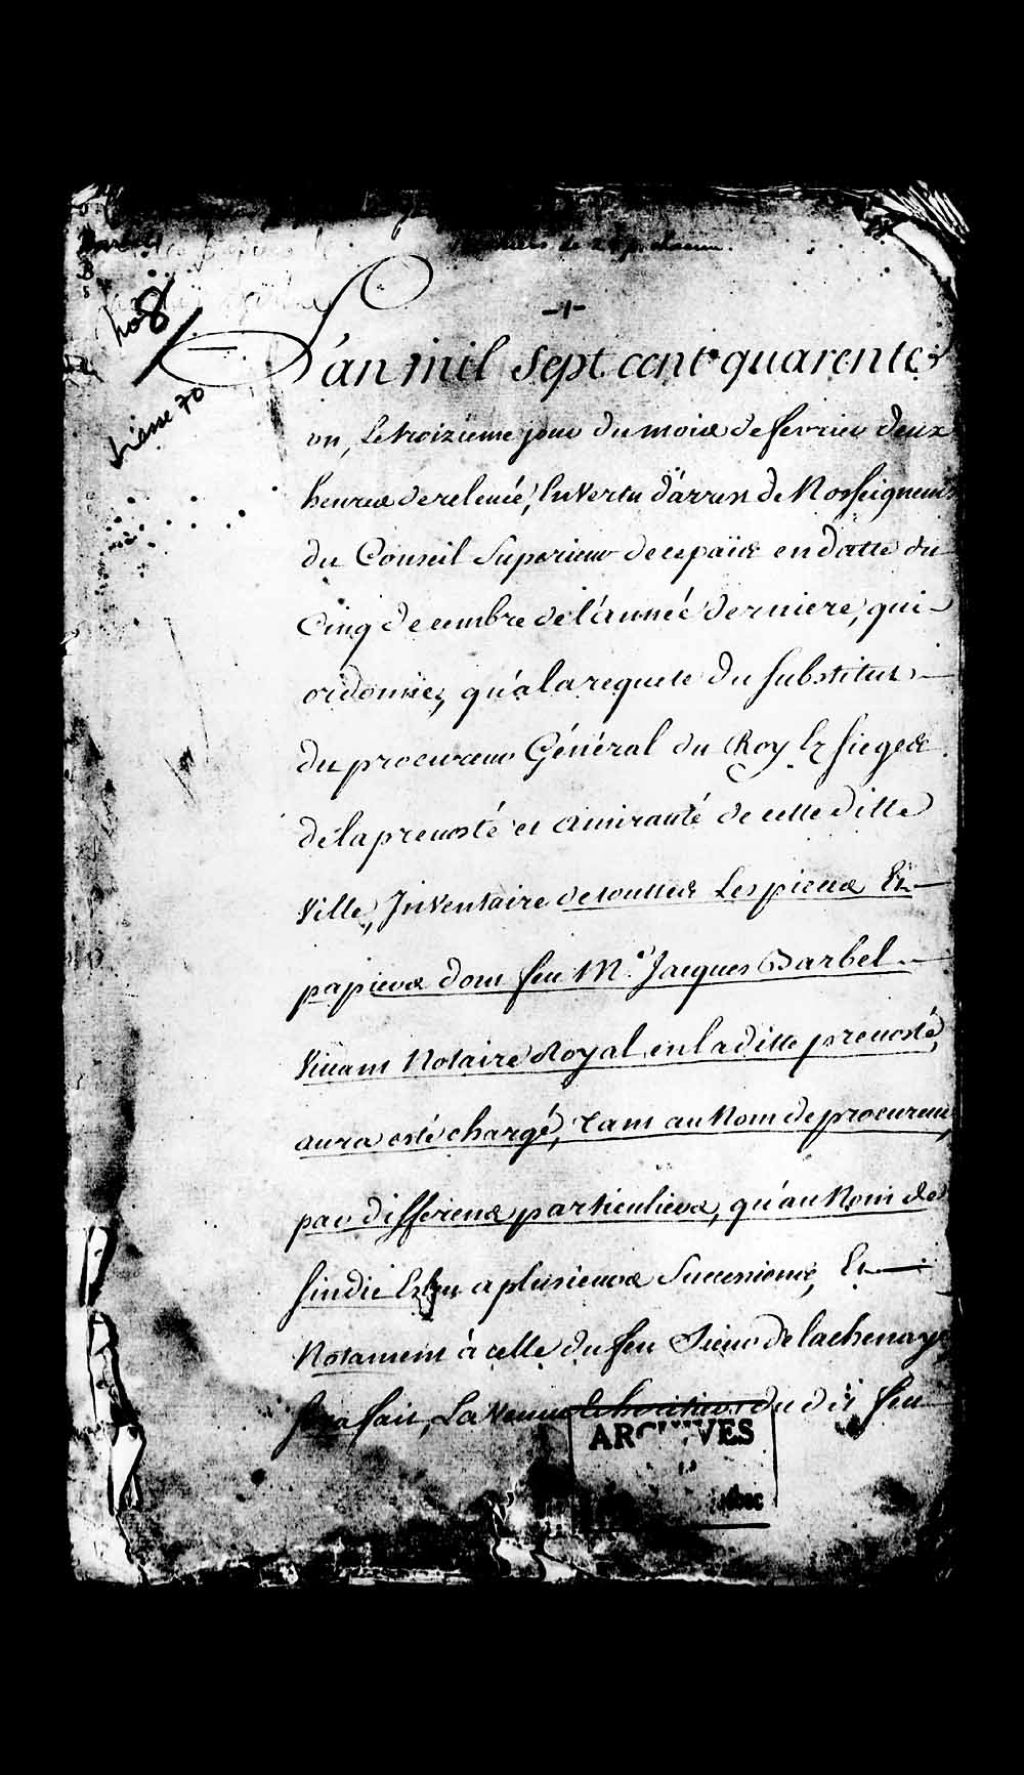 No 8
Liasse 70
-1-
L'an mil sept cent quarente
un, Le troizieme jour du mois de fevrier deux
heures de relevée, En Vertu d'arrest de Nosseigneurs
du Conseil Superieur de ce païs en datte du
Cinq decembre de l'année derniere, qui
ordonne, qu'a la requete du substitut
du procureur Général du Roy Ez sieges
de la prevosté et amirauté de cette ditte
Ville, Inventaire de touttes Les pieces Et
papiers dont feu Me. Jacques Barbel
Vivant Notaire Royal en la ditte prevosté,
aura esté chargé, tant au Nom de procureur,
par differens particuliers, qu'au Nom de
sindic Eslu a plusieurs Successions, Et
Notament à celle du feu Sieur de lachenaye
sera fait, La Veuve du dit feu
ARCHIVES